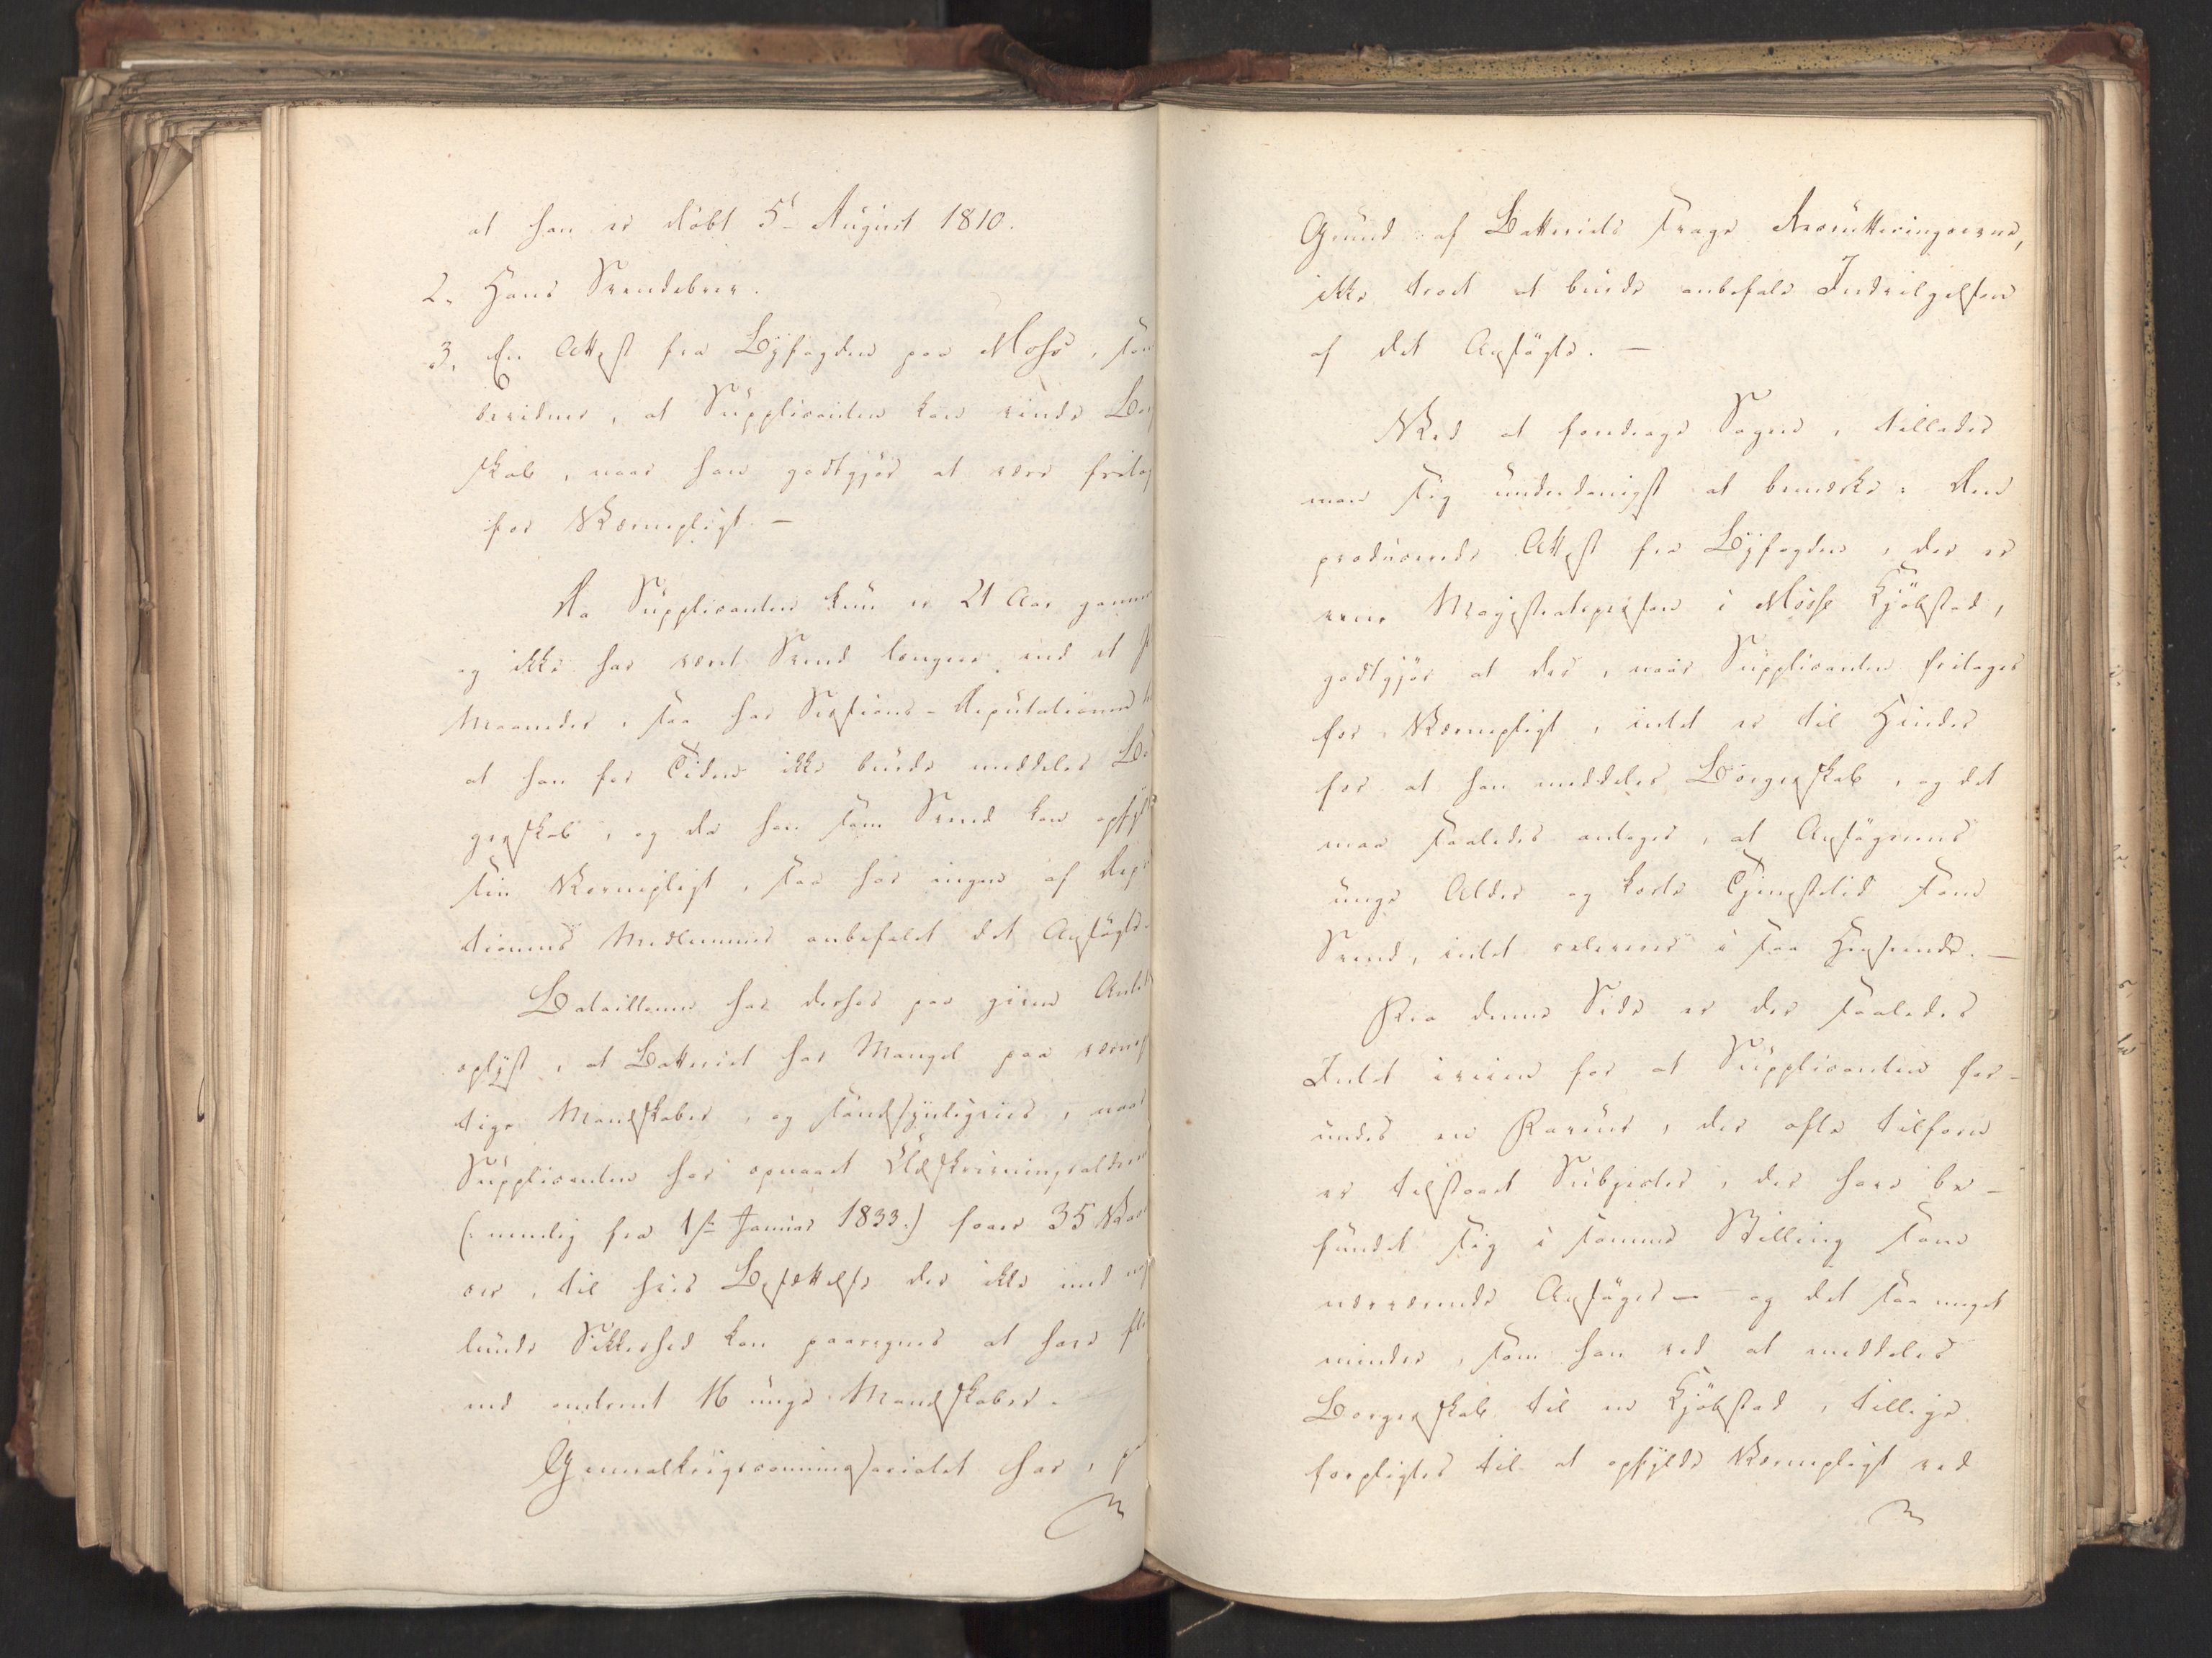 at han er døbt 5t August 1810.
2. Hans Svendebrev.
3. En Attest fra Byfogden paa Moss, som
bevidner, at Supplicanten kan vinde Bor
skab, naar han godtgjør at være fritag
for Værnepligt. —
Da Supplicanten kun er 21 Aar gamme
og ikke har været Svend længere end et P
Maaneder, saa har Sessions-Deputationen
at han for Tiden ikke burde meddeles Bo
gerskab, og da han som Svend kan opfyl
sin Værnepligt, saa har ingen af Depu
tionens Medlemmer anbefalet det Ansøgte.
Bataillonen har derhos paa given Anled
oplyst, at Batteriet har Mangel paa værnep
tige Mandskaber, og sandsynligviis, naar
Supplicanten har opnaaet Udskrivningsalderen
(: nemlig fra 1ste Januar 1833.) faaer 35 Vacan
cer, til hvis Besættelse der ikke med no
lunde Sikkerhed kan paaregnes at have fle
end omtrent 16 unge Mandskaber.
Generalkrigscommissariatet har, p
Grund af Batteriets svage Recrutteringsevne,
ikke troet at burde anbefale Indvilgelsen
af det Ansøgte. —
Ved at foredrage Sagen, tillader
man sig underdanigst at bemærke: Den
producerede Attest fra Byfogden, der er
ene Magistratsperson i Mosse Kjøbstad,
godtgjør at der, naar Supplicanten fritages
for Værnepligt, intet er til Hinder
for at han meddeles Borgerskab, og det
maa saaledes antages, at Ansøgerens
unge Alder og korte Tjenestetid som
Svend, intet releverer i saa Henseende. —
Fra denne Side er der saaledes
Intet iveien for at Supplicanten for-
undes en Favør, der ofte tilforn
er tilstaaet Subjecter, der have be-
fundet sig i samme Stilling som
nærværende Ansøger — og det saa meget
mindre, som han ved at meddeles
Borgerskab til en Kjøbstad, tillige
forpligtes til at opfylde Værnepligt ved